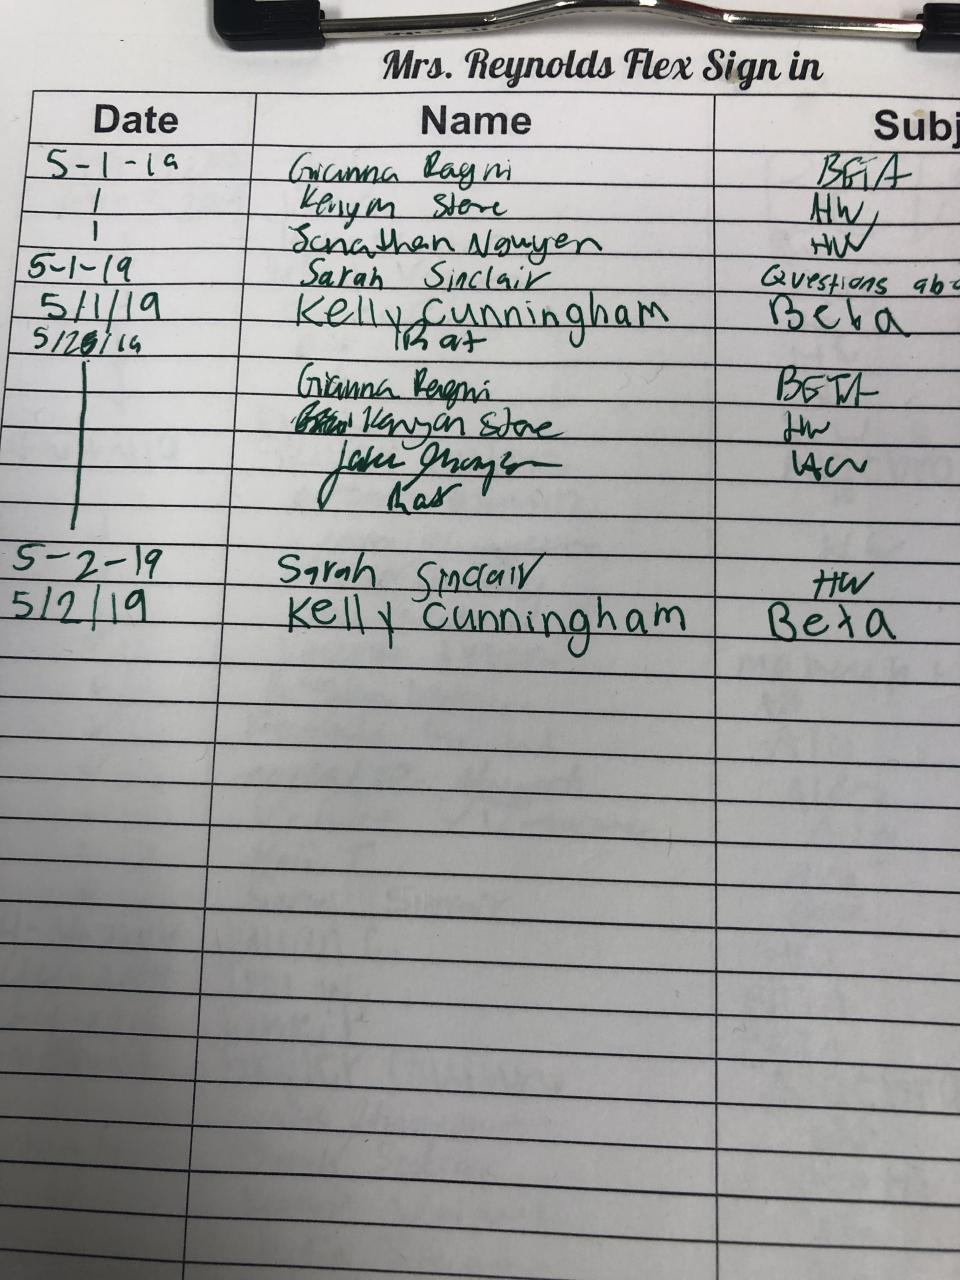 Mrs. Reynolds Flex Sign in
Date Name Subj
5-1-19 Gianna Ragni BETA
Kenyon Stone HW
Jonathan Nguyen HW
5-1-19 Sarah Sinclair Questions abo
5/1/19 Kelly Cunningham Beta
Kat
Gianna Ragni BETA
Kenyan Stone HW
HW
Kat
5-2-19 Sarah Sinclair HW
5/2/19 Kelly Cunningham Beta